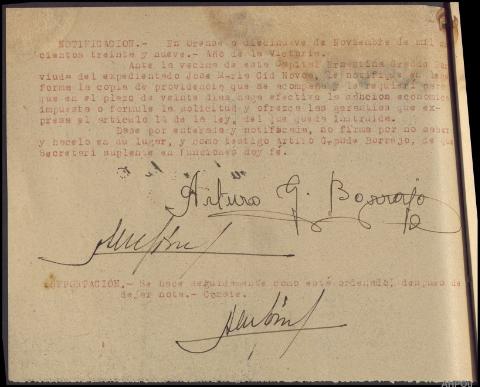 NOTIFICACION.- En Orense a diecinueve de Noviembre de mil
cientos treinta y nueve.- Año de la Victoria.
Ante la vecina de esta Capital Ernestina
viuda del expedientado Jose Maria Cid Novoa, le notifiqué en
forma la copia de providencia que se acompaña y le requerí para
que en el plazo de veinte dias, haga efectiva la sancion economica
impuesta o formule la solicitud y ofrezca las garantias que ex-
presa el articulo 14 de la ley, del que queda instruida.
Dase por enterada y notificada, no firma por no saber
y hacelo en su lugar, y como testigo Arturo Borrajo, de que
Secretari suplente en funciones doy fe.
Arturo G. Borrajo
.- Se hace seguidamente como está ordenado, despues de
dejar nota.- Conste.